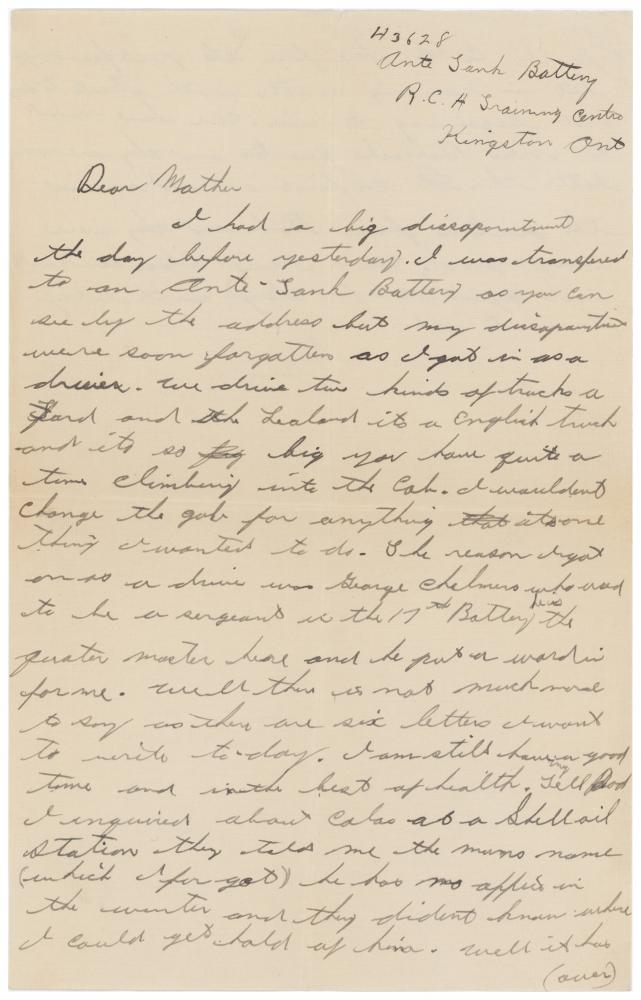 H3628
Ante Tank Battery
R.C.A Training Centre
Kingston Ont
Dear Mother
I had a big dissapointment
the day before yesterday. I was transfered
to an Ante-Tank Battery as you can
see by the address but my dissapointments
were soon forgotten as I got in as a
driver. We drive two kinds of trucks a
Ford and the Lealand its a English truck
and its so big you have quite a
time climbing into the Cab. I wouldent
change the gob for anything its one
thing I wanted to do. The reason I got
on as a drive was George Chelmers who used
to be a sergeant in the 17th Battery he is the
quater master here and he put a word in
for me. Well there is not much more
to say as there are six letters I want
to write to-day. I am still having a good
time and in the best of health. Tell Dad
I inquired about at a Shell oil
Station they told me the mans name
(which I for got) he has no office in
the winter and they dident know where
I could get hold of him. Well it has
(over)